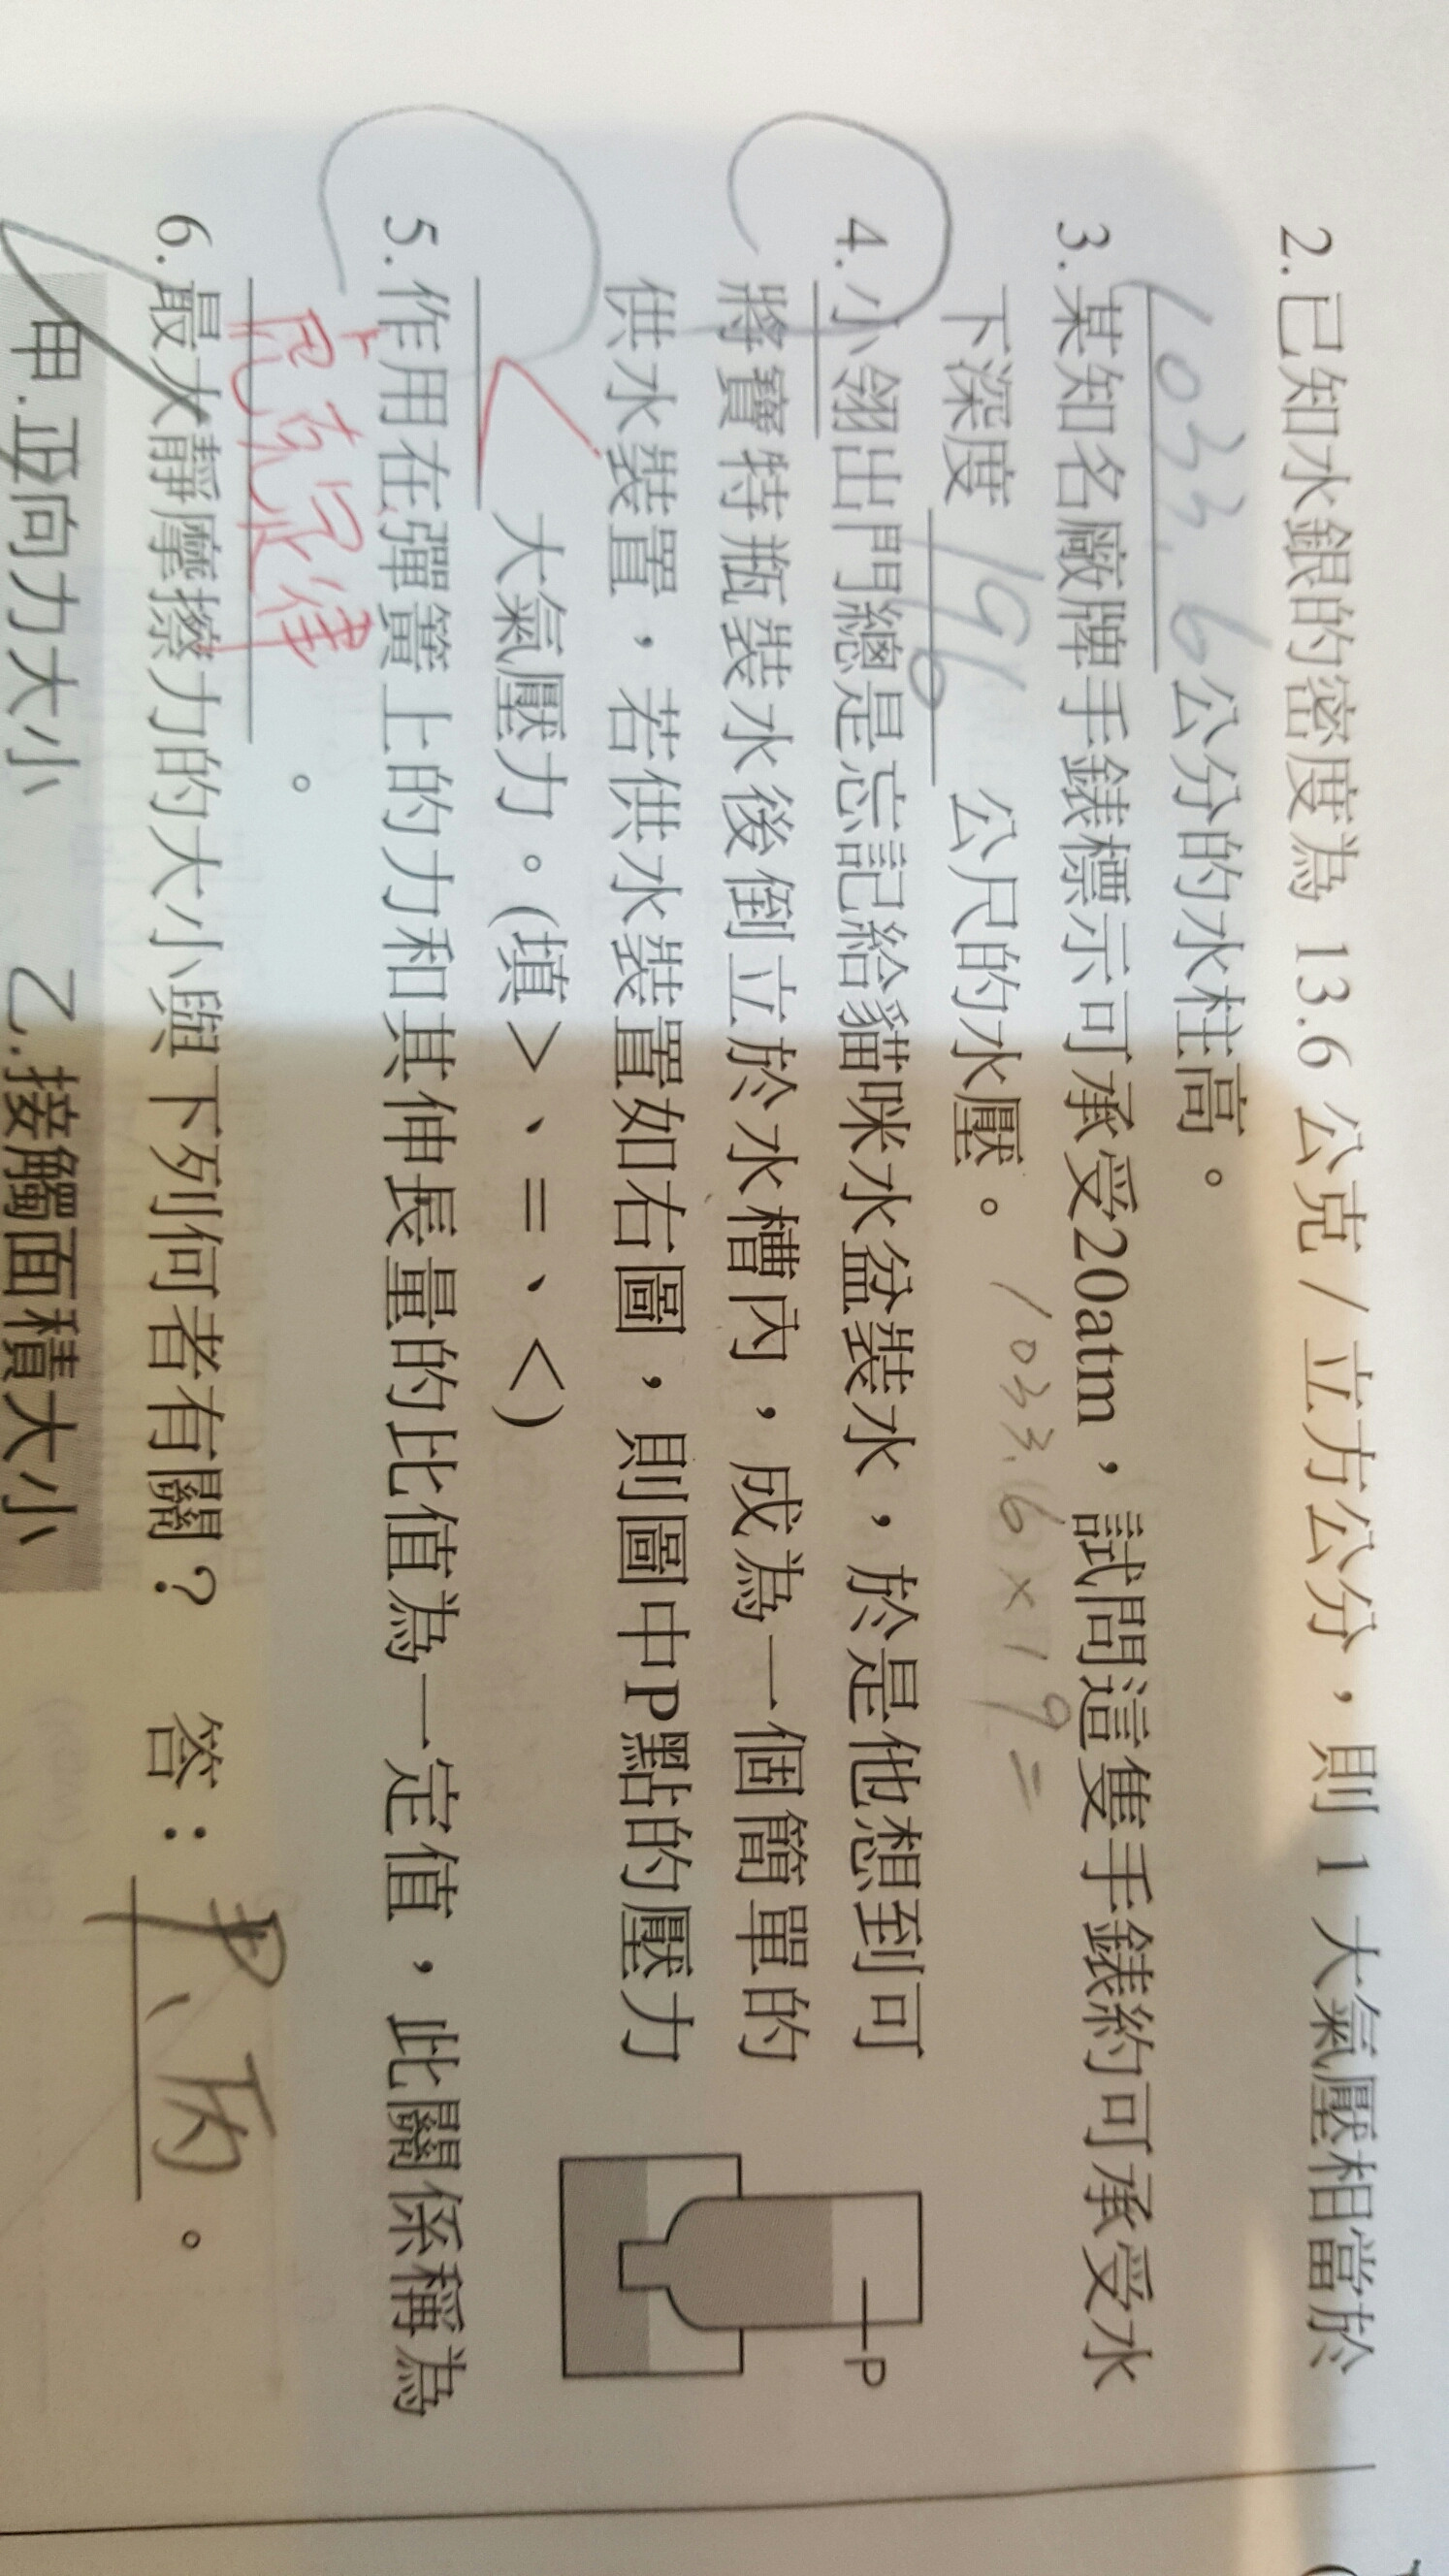 2.已知水銀的密度為 13.6 公克 / 立方公分，則 1 大氣壓相當於
1033.6 公分的水柱高。
3.某知名廠牌手錶標示可承受20atm，試問這隻手錶約可承受水
下深度 196 公尺的水壓。 1033.6×19=
4.小翎出門總是忘記給貓咪水盆裝水，於是他想到可
將寶特瓶裝水後倒立於水槽內，成為一個簡單的
供水裝置，若供水裝置如右圖，則圖中P點的壓力
< 大氣壓力。(填>、=、<)
P
5.作用在彈簧上的力和其伸長量的比值為一定值，此關係稱為
虎克定律。
6.最大靜摩擦力的大小與下列何者有關？ 答：甲、丙。
甲.正向力大小 乙.接觸面積大小